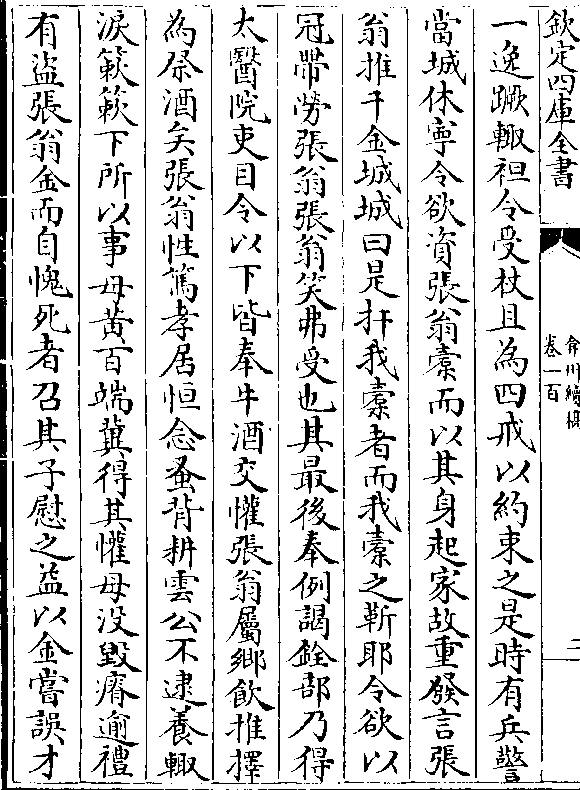 欽定四庫全書
弇州續稿
卷一百
二
一逸蹶輙袒令受杖且為四戒以約束之是時有兵警
當城休寧令欲資張翁橐而以其身起家故重發言張
翁推千金城城曰是扞我橐者而我橐之靳耶令欲以
冠帶勞張翁張翁笑弗受也其最後奉例謁銓部乃得
太醫院吏目令以下皆奉牛酒交懽張翁屬鄉飲推擇
為祭酒矣張翁性篤孝居恒念蚤背耕雲公不逮養輙
淚簌簌下所以事母黄百端冀得其懽母没毀瘠逾禮
有盜張翁金而自愧死者召其子慰之益以金嘗誤才